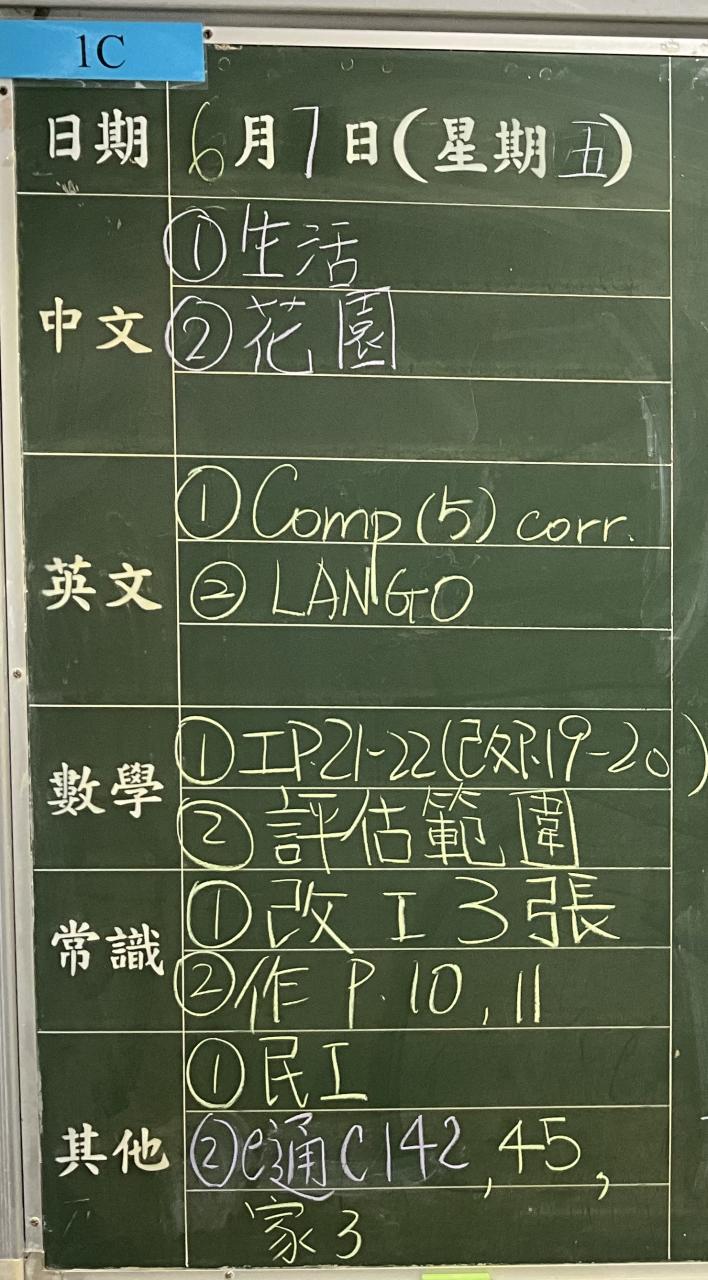 1C
日期 6月7日(星期五)
中文
①生活
②花園
英文
①Comp(5) corr.
②LANGO
數學
①工P.21-22(改P.19-20)
②評估範圍
常識
①改工3張
②作 P.10,11
其他
①民工
②e通C142,45,
家3